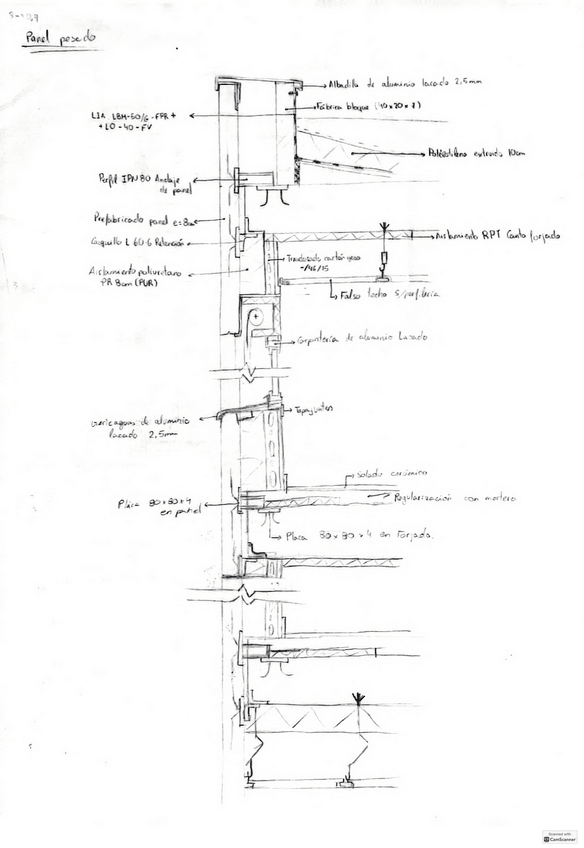 Panel pesado
Albardilla de aluminio lacado 2,5mm
Fábrica bloque (40x20x7)
LIA. LBM-50/G-FPR +
+ LO-40-FV
Poliestileno extruido 10cm
Perfil IPN 80 Anclaje
de panel
Prefabricado panel e=8cm
Aislamiento RPT Canto forjado
Casquillo L 60·6 Retención
Trasdosado cartón yeso
-/46/15
Aislamiento poliuretano
PR 8cm (PUR)
Falso techo s/perfilería
Carpintería de aluminio Lacado
Tapajuntas
Vierteaguas de aluminio
lacado 2,5mm
Solado cerámico
Regularización con mortero
Placa 80x80x4
en panel
Placa 80x80x4 en Forjado.
Scanned with
CamScanner